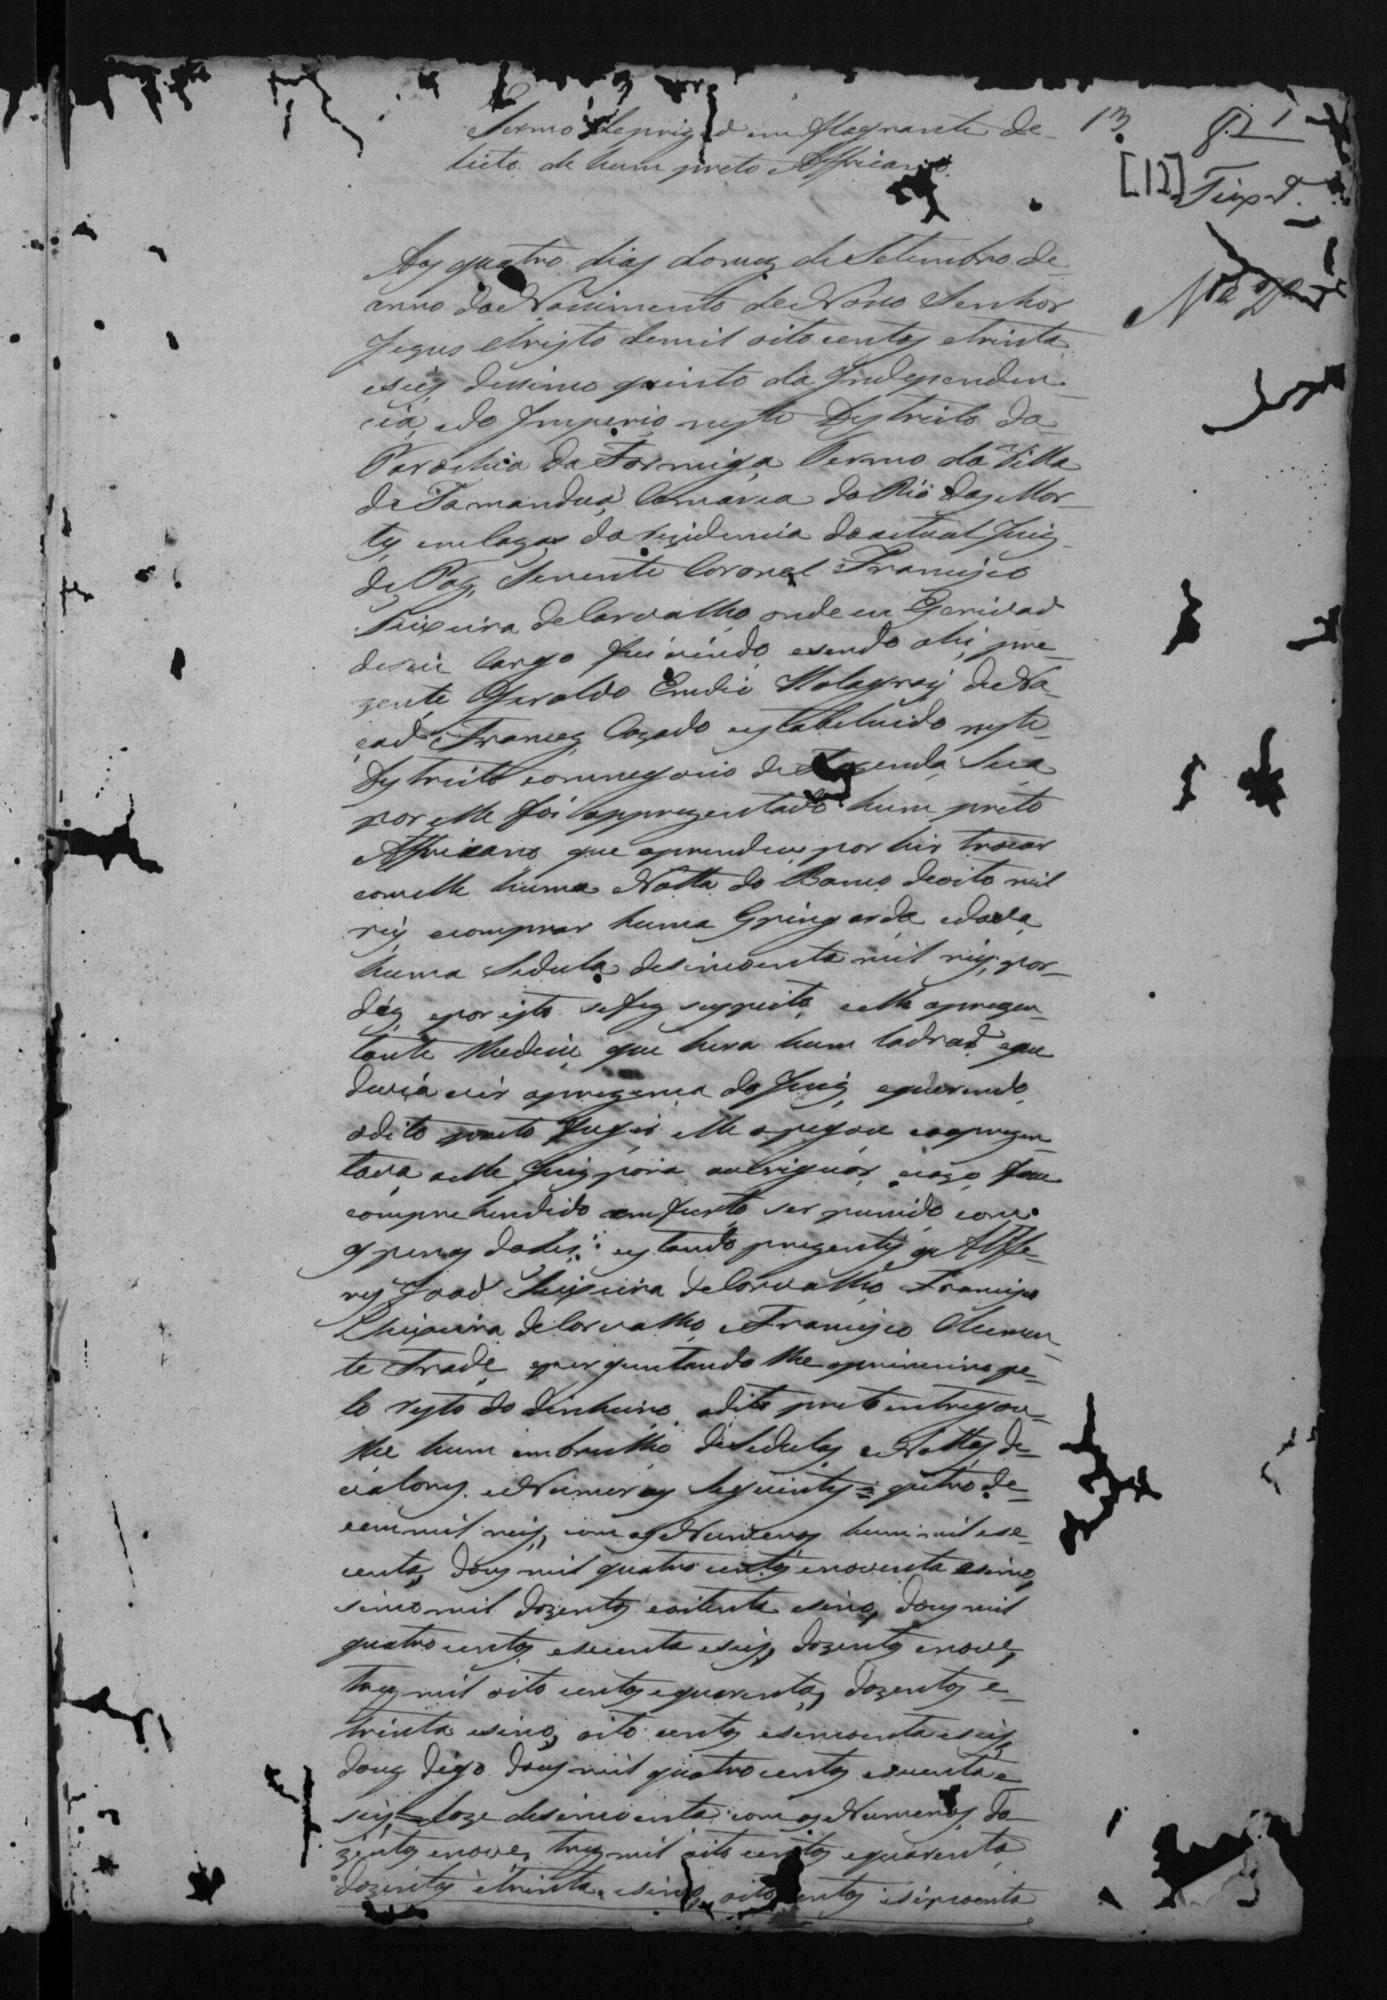 Termo de prizaõ em flagrante de-
licto de hum preto Affricano.
13
82
[12]
Teixrª.
Aos quatro dias do mez de Setembro de
anno do Nascimento de Nosso Senhor
Jezus Christo de mil oito centos e trinta
e seis, dessimo quinto da Independen-
cia, e do Imperio neste Destricto da
Parochia da Formiga, Termo da Villa
de Tamanduá, Comarca do Rio das Mor-
tes em cazas da rezidencia do actual Juiz
de Paz, Tenente Coronel Francisco
Teixeira de Carvalho, onde eu Escrivaõ
de seu Cargo fui vindo, e sendo ahi pre-
zente Geraldo Emdio Malagraij de Na-
çaõ Francez, cazado estabelecido neste
Destricto com negocio de Fazenda Seca
por elle foi apprezentado hum preto
Affricano que aprendeu por hir trocar
com elle huma Notta do Banco de oito mil
reis, e comprar huma Gringarda, e dava
huma Sedula de sincoenta mil reis, por
déz, e por isto se fez suspeito, e elle aprezen-
tante lhe dice, que hera hum ladraõ, e que
devia vir aprezença do Juiz, e querendo
o dito preto fugir elle o pegou e o aprezen-
tava a elle Juiz para averiguar, e cazo fosse
comprehendido em furto, ser punido com
as penas da Lei: e estando prezentes os Alffe-
res Joaõ Teixeira de Carvalho, Francisco
Theixeira de Carvalho, e Francisco Clemen-
te Frade, e perguntando lhe o primeiro pe-
lo resto do dinheiro, o dito preto entregou-
lhe hum embrulho de Sedulas, e Nottas de
valores e Numeros Seguintes = qutro de
cem mil reis, com os Numeros hum mil e se-
centa, dous mil quatro centos e noventa e sinco,
sinco mil dozentos e oitenta e sinco, dous mil
quatro centos e secenta e seis, dozentos e nove,
tres mil oito centos e quarenta, dozentos e
trinta e sinco, oito centos e sincoenta e seis,
dous digo dous mil quatro centos e secenta e
seis, = doze de sincoenta com os Numeros, do-
zentos e nove, tres mil oito centos e quarenta,
dozentos e trinta e sinco, oito centos e sincoenta